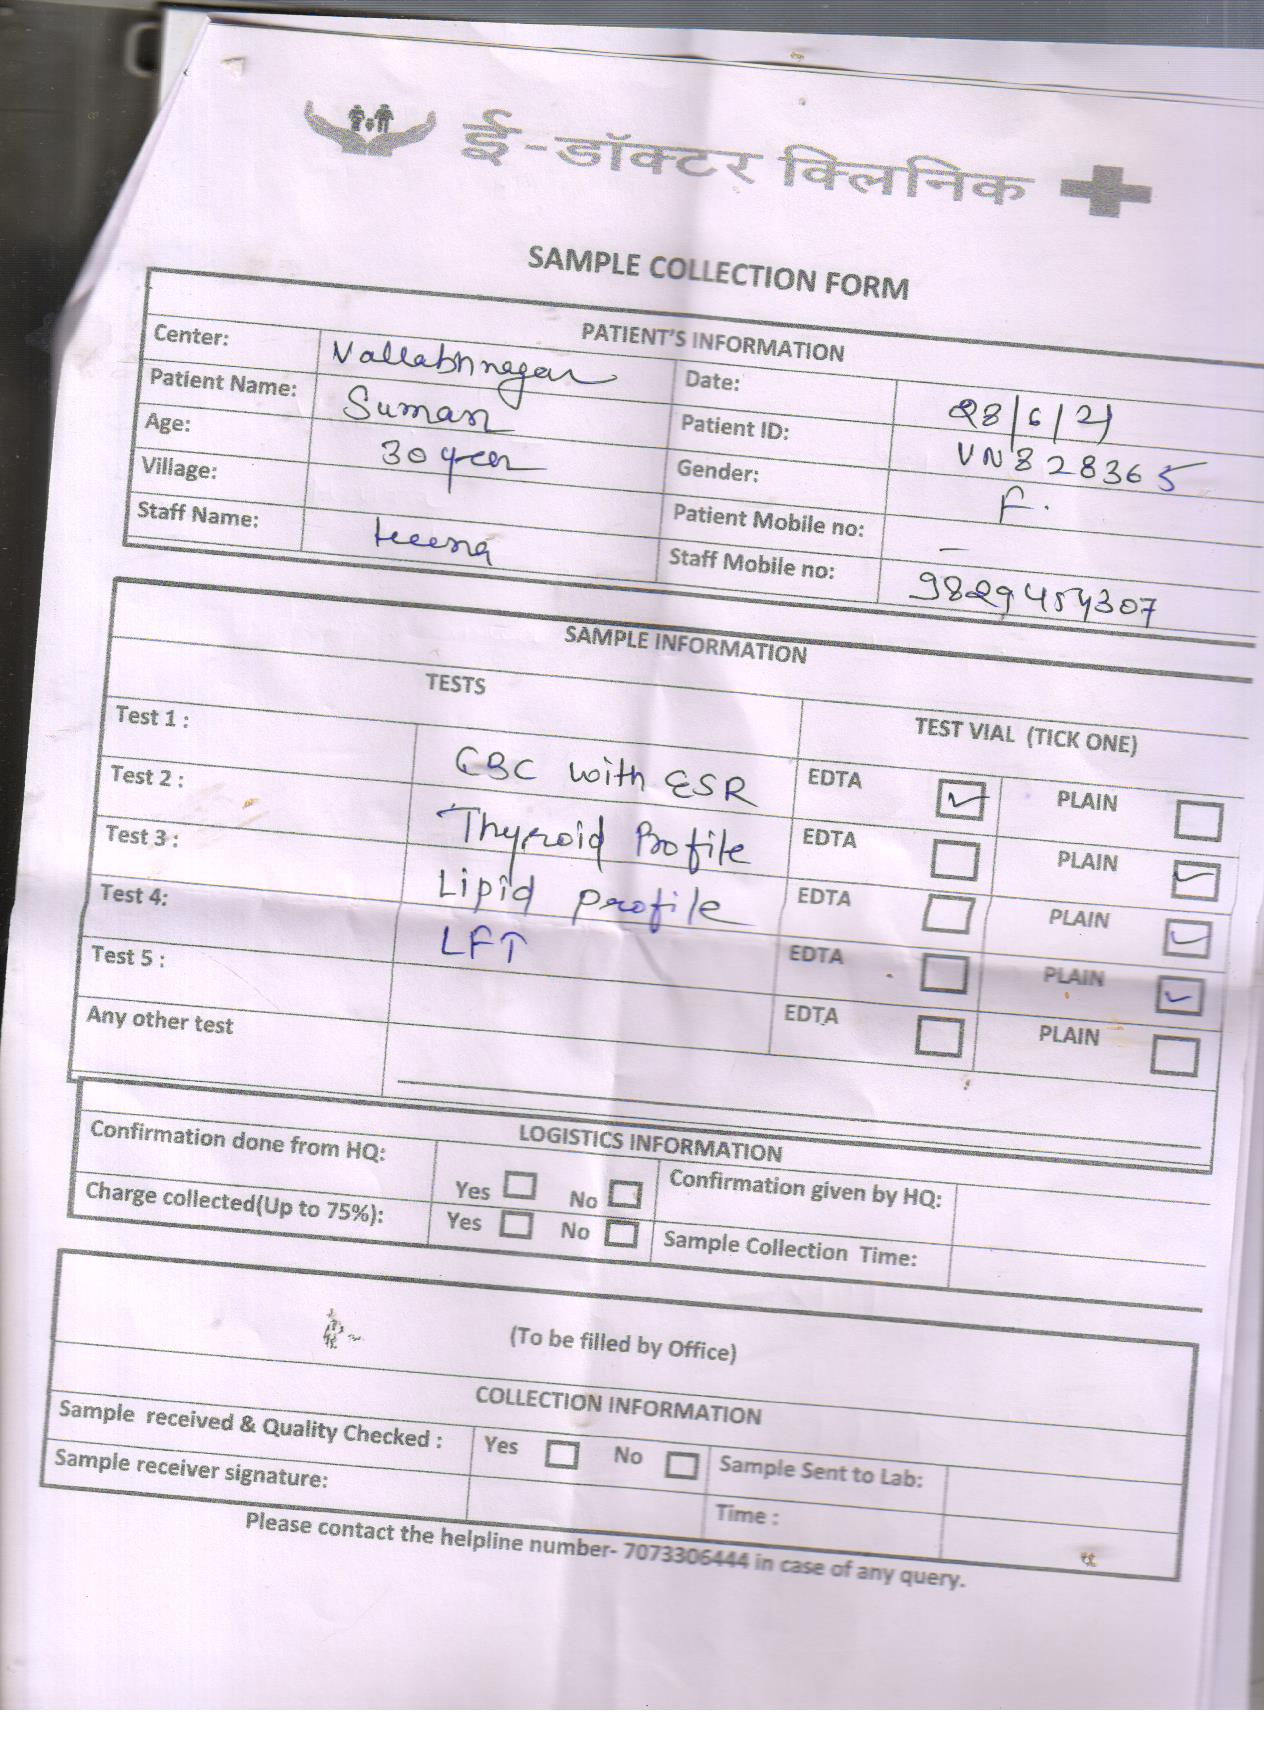 ई-डॉक्टर क्लिनिक
SAMPLE COLLECTION FORM
PATIENT'S INFORMATION
Center: Vallabhnagar Date: 28/6/21
Patient Name: Suman Patient ID: VN828365
Age: 30 year Gender: F.
Village: Patient Mobile no: —
Staff Name: Heena Staff Mobile no: 9829454307
SAMPLE INFORMATION
TESTS TEST VIAL (TICK ONE)
Test 1 : CBC with ESR EDTA ✓ PLAIN
Test 2 : Thyroid Profile EDTA PLAIN ✓
Test 3 : Lipid Profile EDTA PLAIN ✓
Test 4: LFT EDTA PLAIN ✓
Test 5 : EDTA PLAIN
Any other test
LOGISTICS INFORMATION
Confirmation done from HQ: Yes No Confirmation given by HQ:
Charge collected(Up to 75%): Yes No Sample Collection Time:
(To be filled by Office)
COLLECTION INFORMATION
Sample received & Quality Checked : Yes No Sample Sent to Lab:
Sample receiver signature: Time :
Please contact the helpline number- 7073306444 in case of any query.